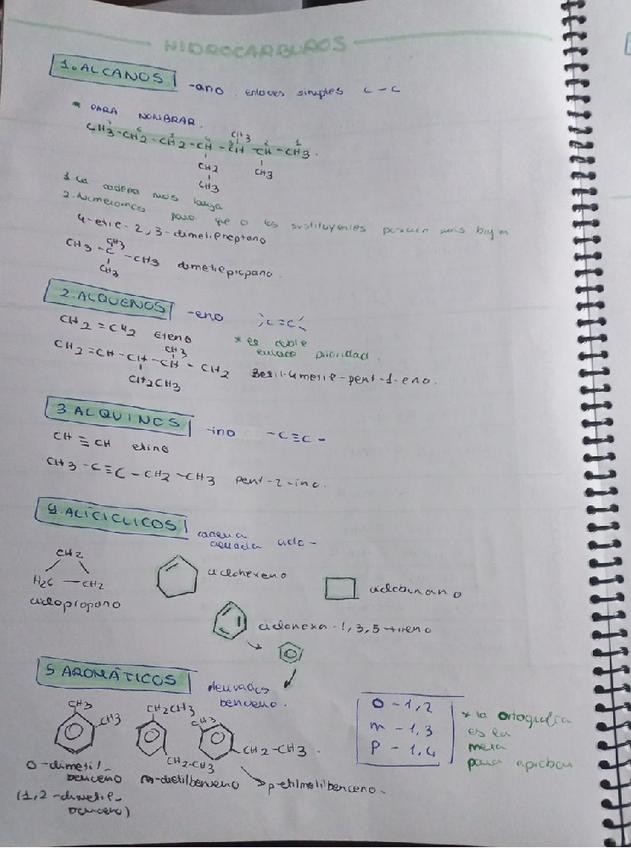 HIDROCARBUROS
1. ALCANOS -ano enlaces simples C-C
* PARA NOMBRAR.
CH3
CH3-CH2-CH2-CH-CH-CH-CH3.
CH2 CH3
CH3
1 La cadena más larga
2. Numeramos para que a los sustituyentes posean más bajo
4-etil-2,3-dimetilheptano
CH3
CH3-C-CH3 dimetilpropano.
CH3
2. ALQUENOS -eno C=C
CH2=CH2 Eteno * es doble
enlace prioridad.
CH3
CH2=CH-CH-CH-CH2 3etil-4metil-pent-1-eno.
CH2CH3
3 ALQUINOS -ino -C≡C-
CH≡CH etino
CH3-C≡C-CH2-CH3 pent-2-ino.
4. ALICICLICOS cadena
cerrada ciclo-
CH2
H2C - CH2 ciclohexeno ciclobutano
ciclopropano
ciclohexa-1,3,5-trieno
5 AROMÁTICOS derivados
benceno.
CH3 CH2CH3 CH3
CH3 CH2-CH3 CH2-CH3.
o-dimetil-
benceno m-dietilbenceno p-etilmetilbenceno.
(1,2-dimetil-
benceno)
O-1,2
m-1,3
P-1,4
* la ortografía
es la
mera
para aprobar